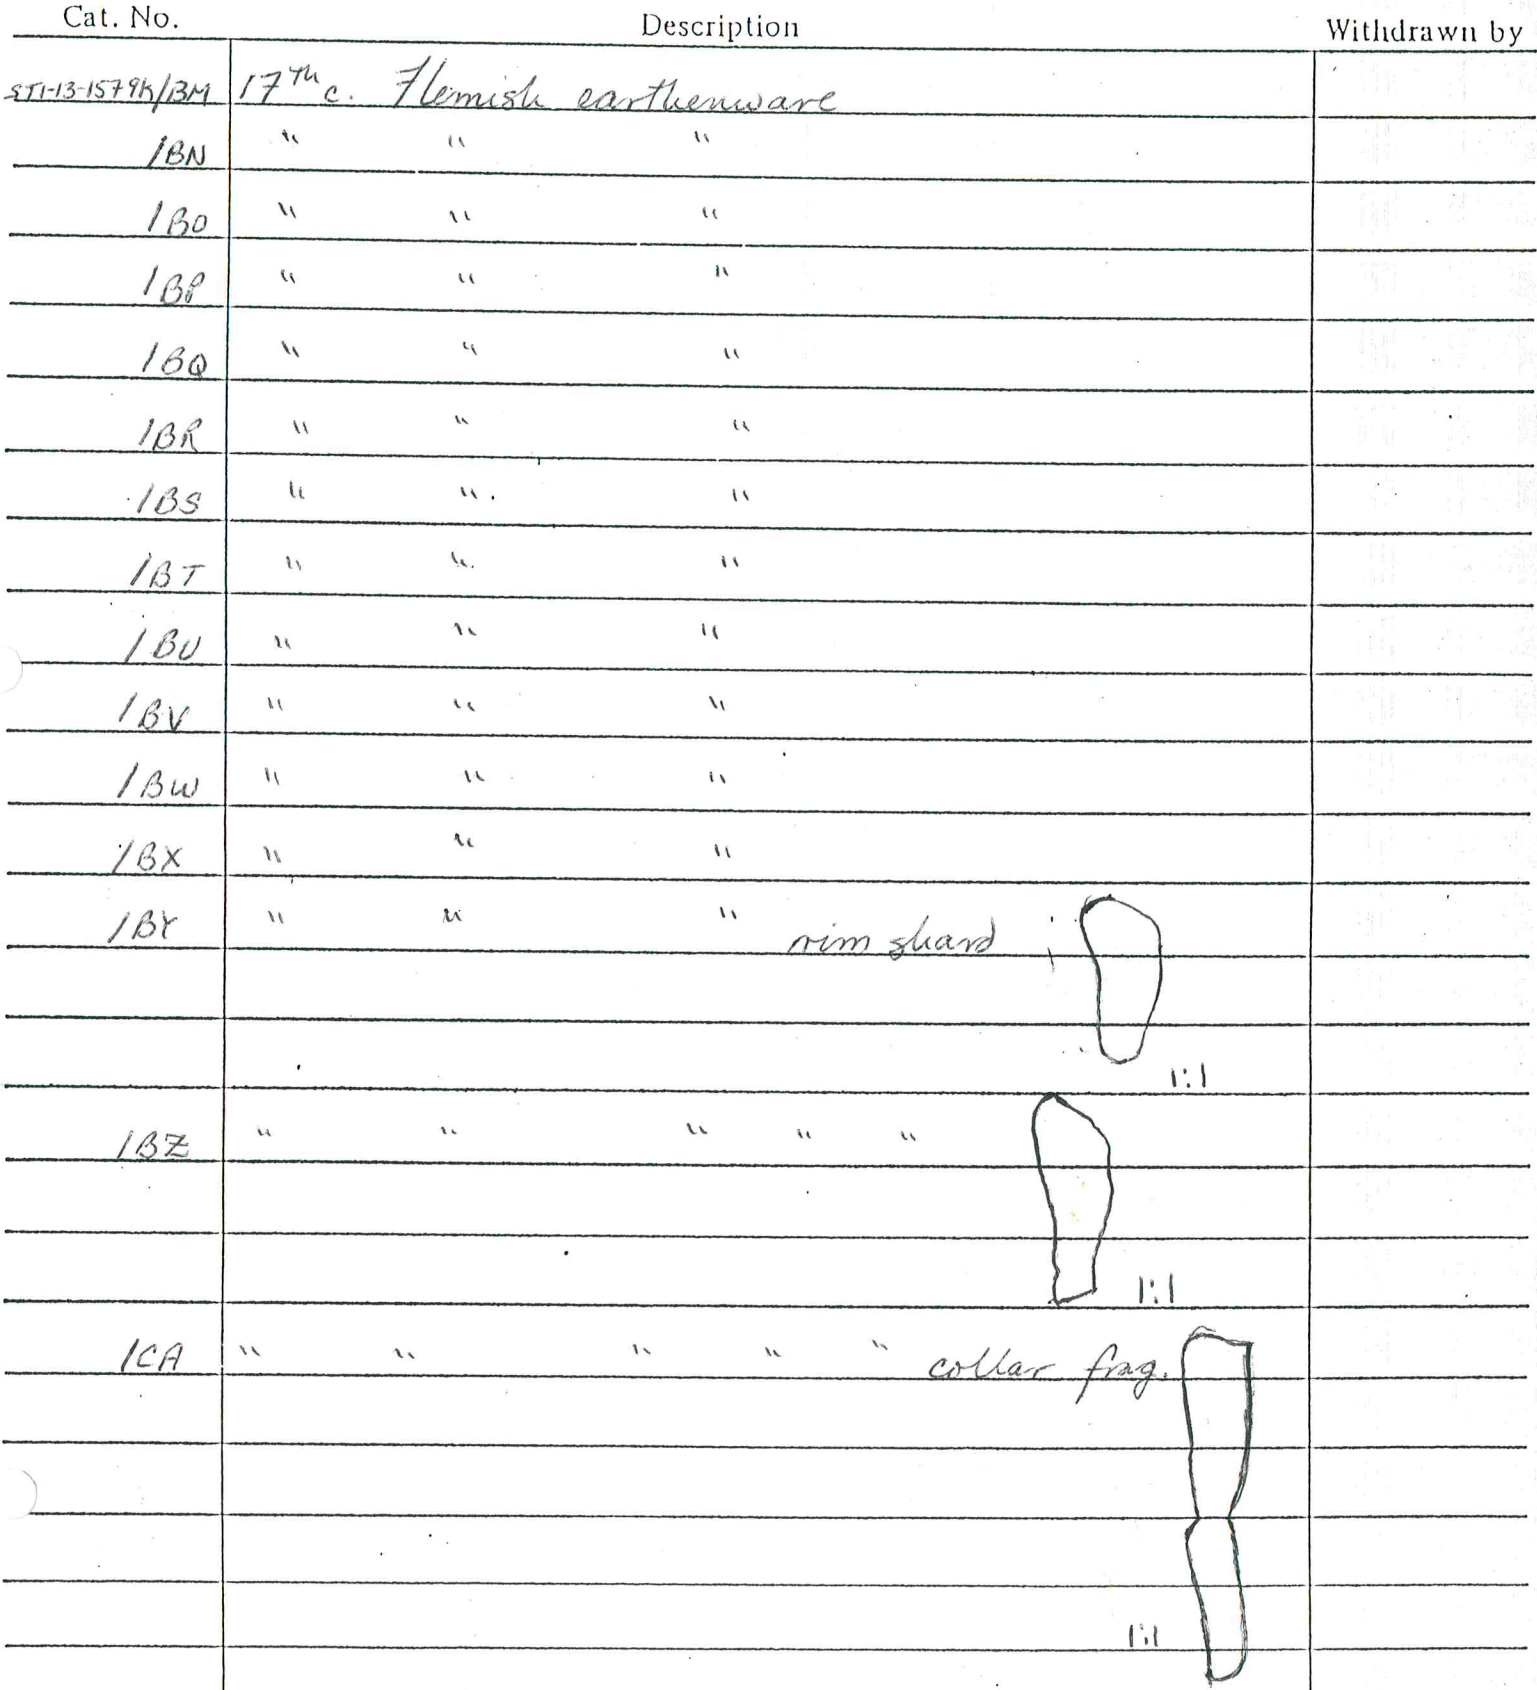 Cat. No. Description Withdrawn by
STI-13-1579K/BM 17Th c. Flemish earthenware
/BN " " "
/BO " " "
/BP " " "
/BQ " " "
/BR " " "
/BS " " "
/BT " " "
/BU " " "
/BV " " "
/BW " " "
/BX " " "
/BY " " " rim shard
1:1
/BZ " " " " "
1:1
/CA " " " " " collar frag.
1:1